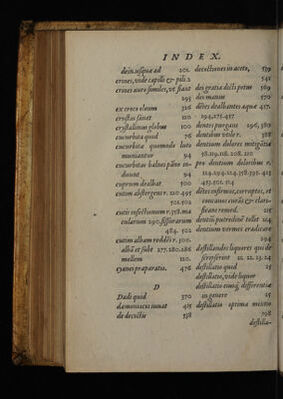 INDEX.
dein usque ad 201.
crines, vide capilli & pili.
crines auro similes, vt fiant
295
ex croco oleum 326
crustas sanat 120
crystallinus globus 100
cucurbita quid 76
cucurbitæ quomodo luto
muniantur 94
cucurbitas balneo quomo in-
ducat 94
cuprum dealbat. 500
cutim abstergens r. 120 495
501.502
cutis infectionum r. 158.ma
cularum 290. fissurarum
484. 502
cutim albam reddēs r. 500.
mellem 120.
cyatus præparatus. 476
D
Dadi quid 370
dæmoniacos iuuat 415
de decoctis 538
decoctiones in aceto, 539
541
dei gratia dicti potus 569
des manus 570
dētes dealbantes aquæ 457.
194,275.457
dentes purgare 296,380
dentibus vtile r. 388
dentium dolores mitigātia
58.119.118.208.210
pro dentium doloribus r.
114.194.214.258.395.415
457.501.514
dētes infirmos, corruptos, et
concauos curās & clari-
ficans remed. 215
dentiū putredinē tollit 214
dentium vermes eradicare
194
destillandi liquores qui de
scripserint 11. 12. 13. 24
destillatio quid 15
destillatio, vide liquor
destillatio eiusq; differentiæ
in genere 15
destillatio optima mixtio
198
destilla-